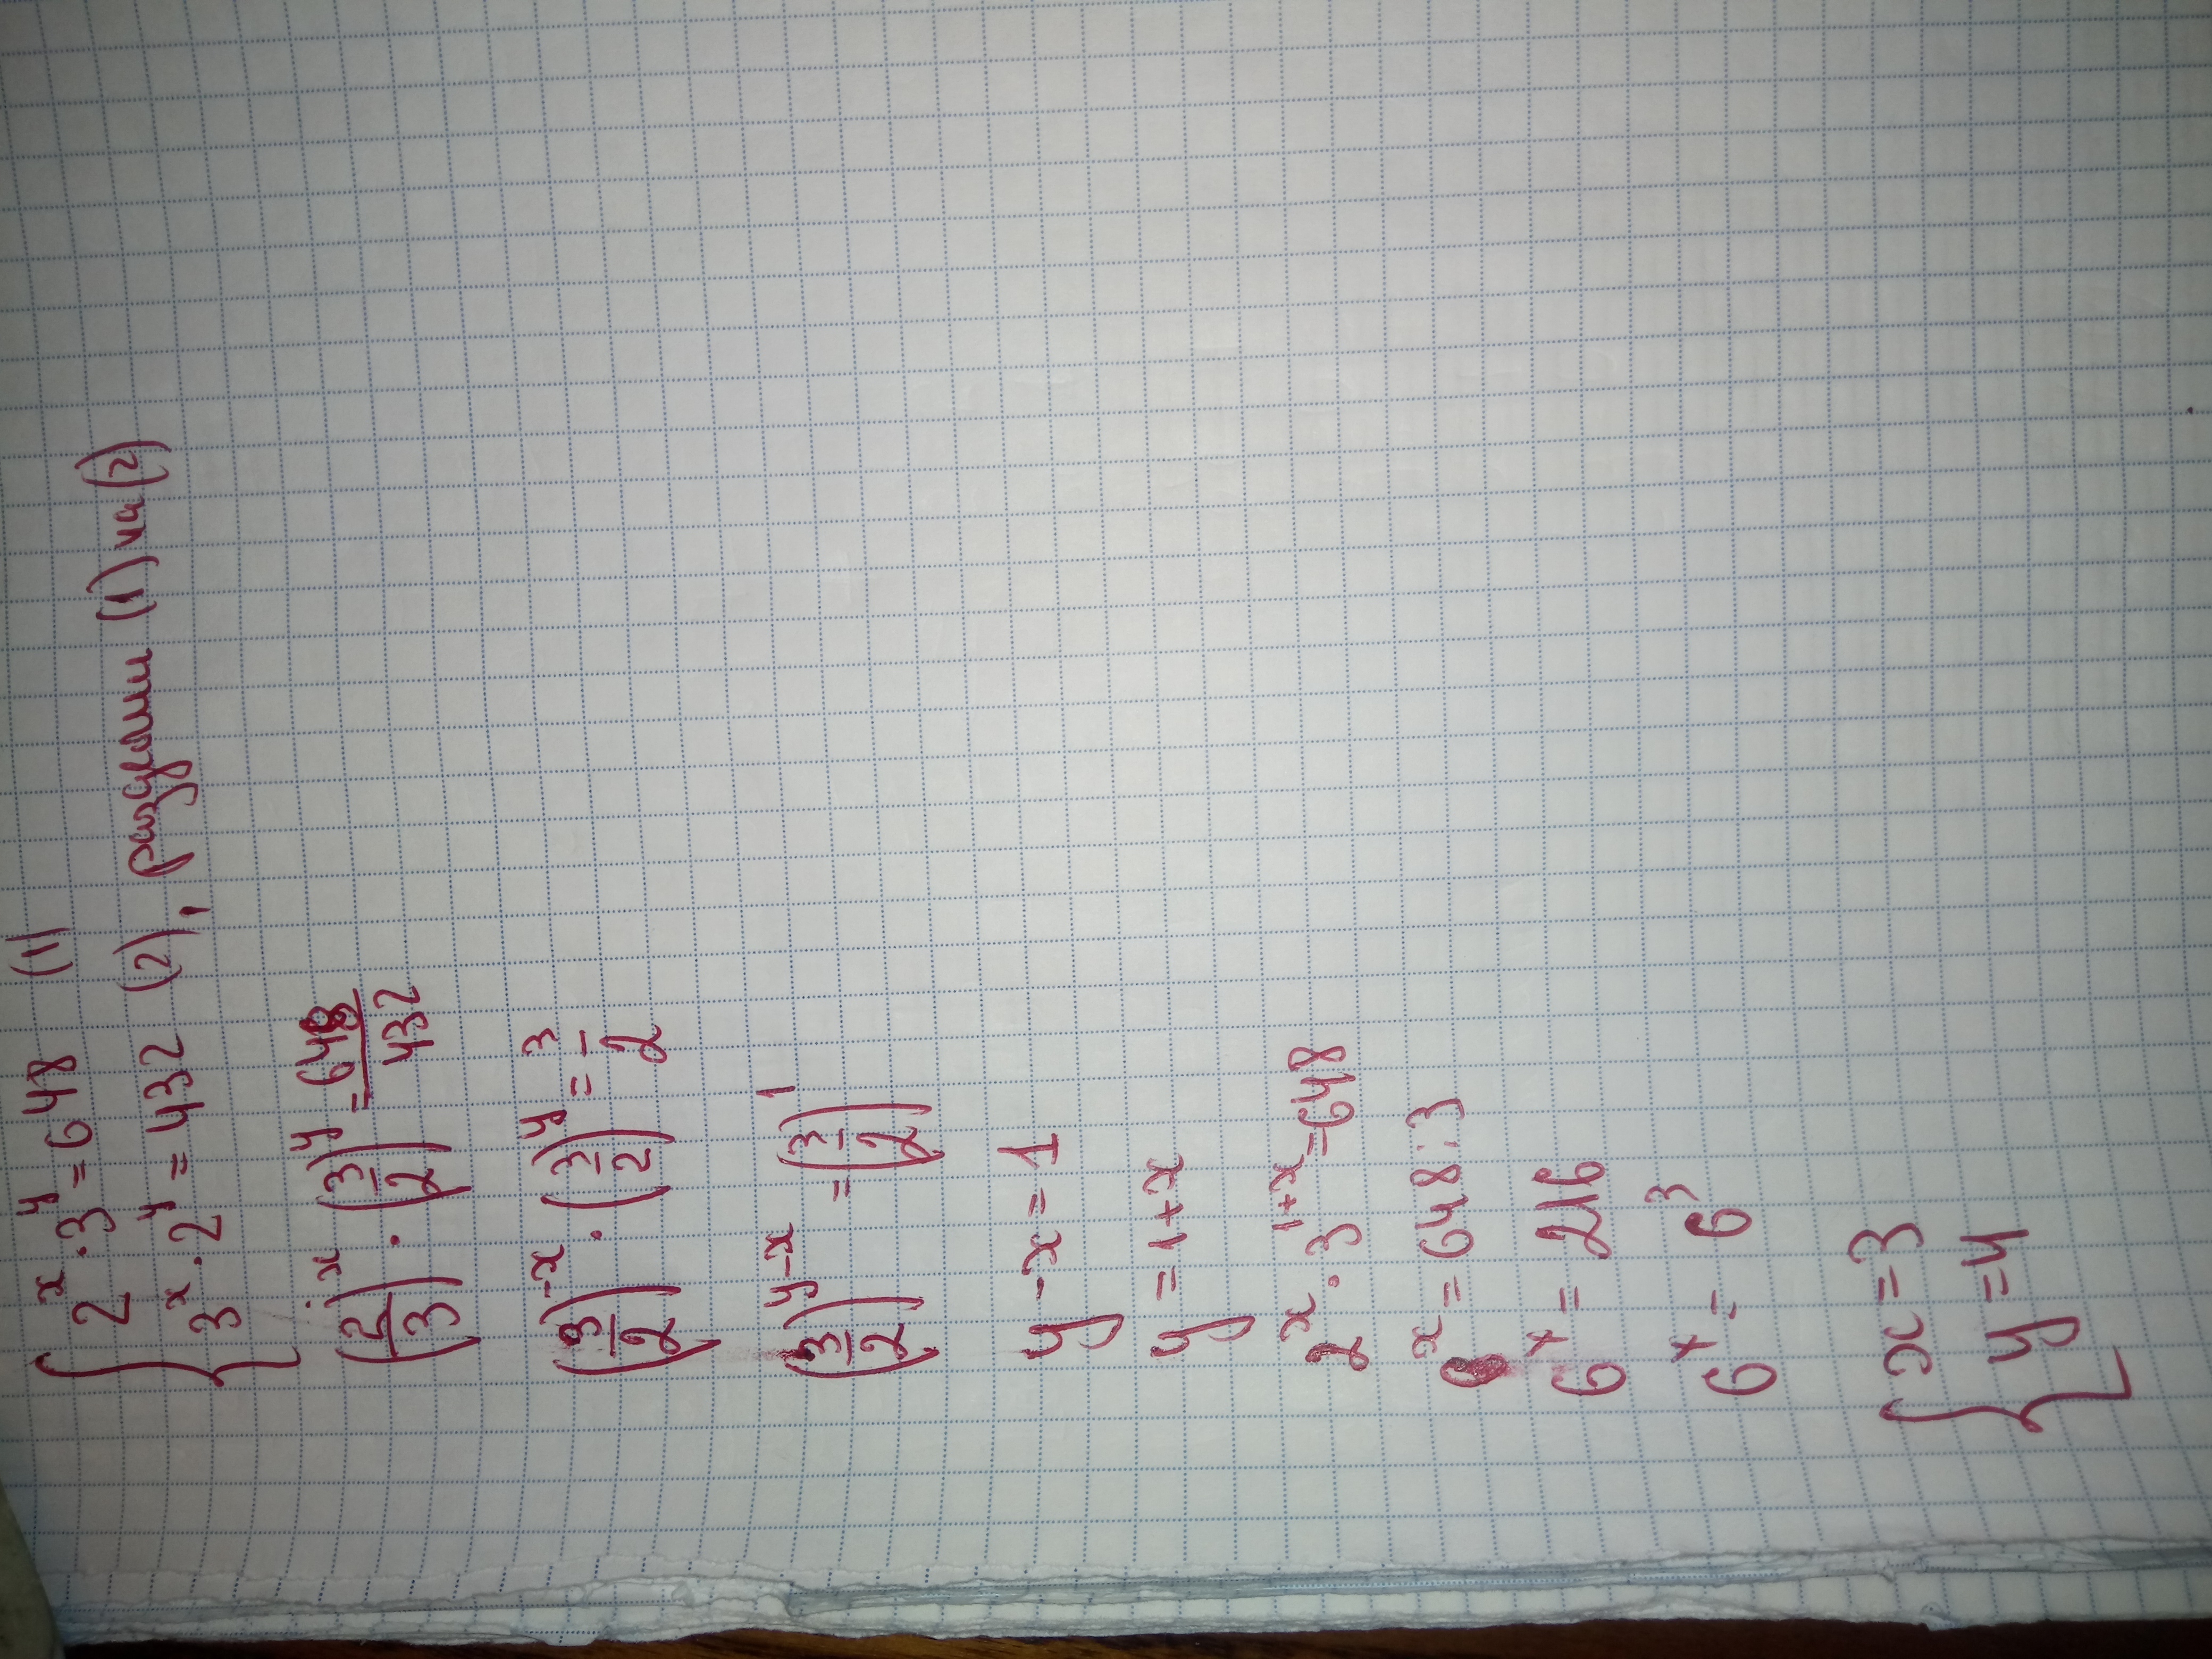 { 2^x · 3^y = 648 (1)
3^x · 2^y = 432 (2), разделим (1) на (2)
(2/3)^x · (3/2)^y = 648/432
(3/2)^-x · (3/2)^y = 3/2
(3/2)^y-x = (3/2)^1
y - x = 1
y = 1 + x
2^x · 3^1+x = 648
6^x = 648 : 3
6^x = 216
6^x = 6^3
{ x = 3
y = 4